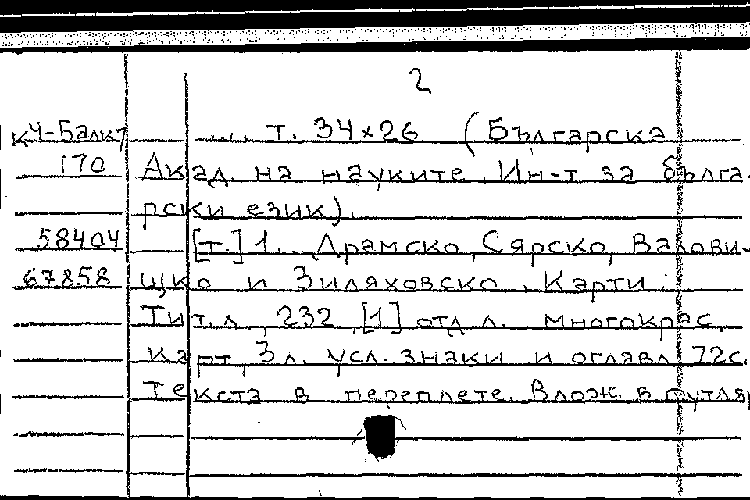 2
КЧ-Балк7 ..... т. 34×26 (Българска
170 Акад. на науките. Ин-т за бълга-
рски език).
58404 [т.] 1. Драмско, Сярско, Валови-
67858 щко и Зиляховско. Карти.
Тит. л., 232, [1] отд. л. многокрас.
карт, 3 л. усл. знаки и оглавл. 72с.
текста в переплете. Влож. в футляр